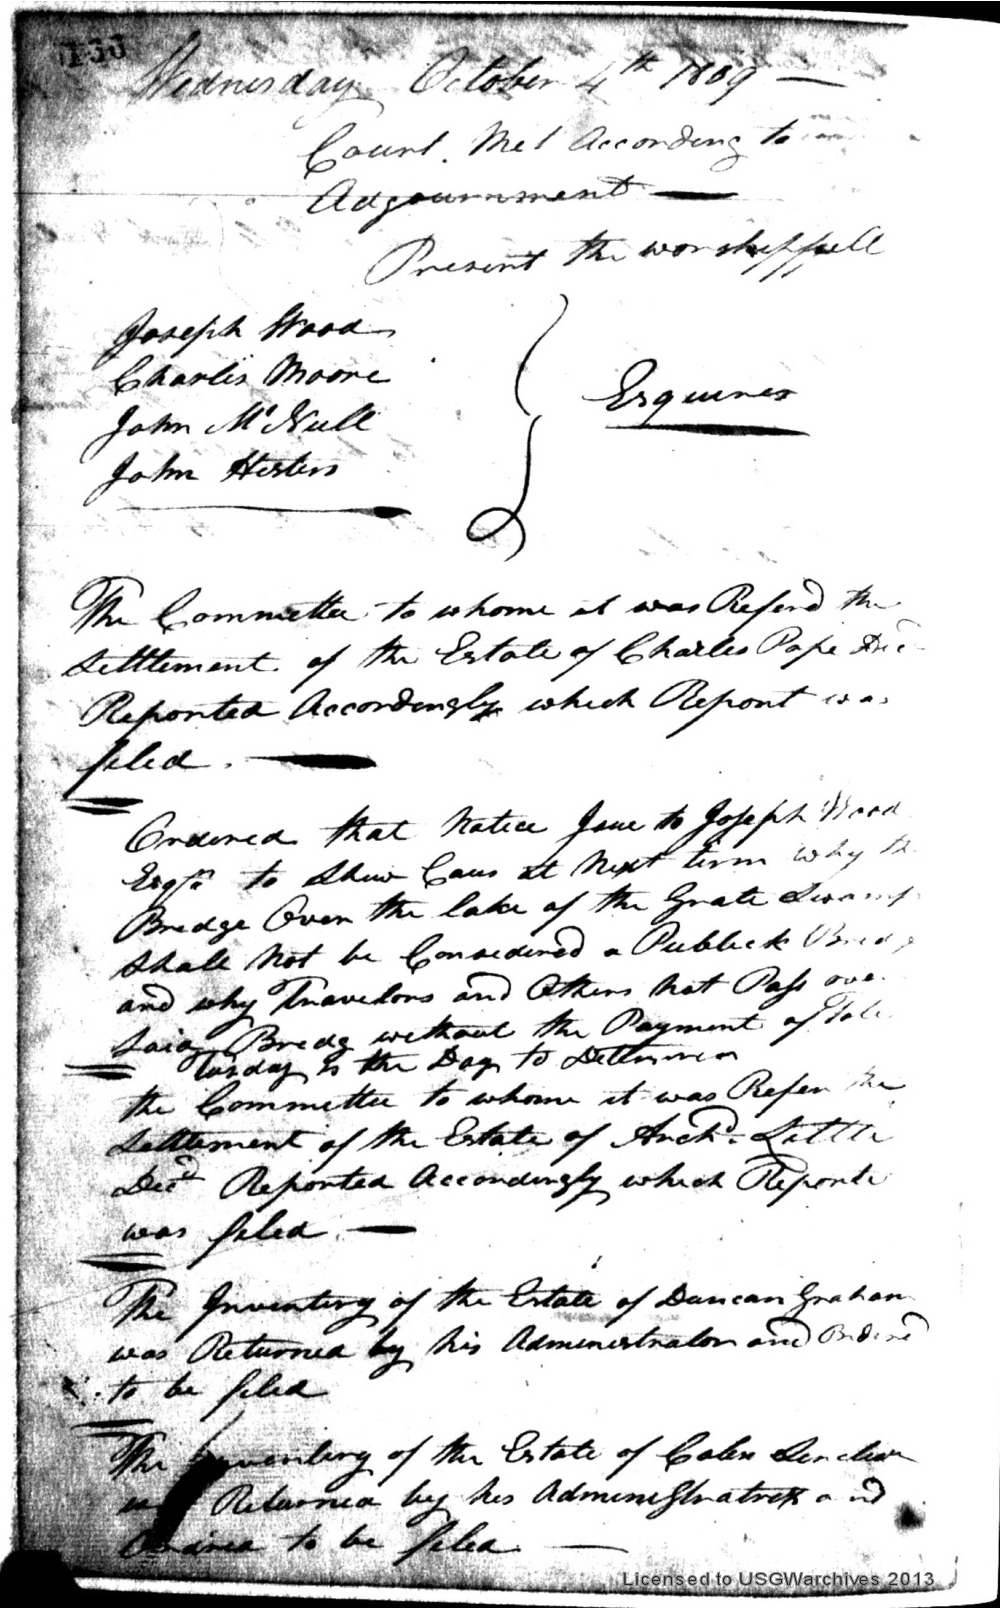 Wednesday October 4th 1809
Court Met According to
Adgournment
Present the worshipfull
Joseph Wood
Charles Moore
John McNull
John Hesters
Esquires
The Committee to whome it was Referd the
Settlement of the Estate of Charles Pope Decd
Reported Accordingly which Report was
filed.
Ordered that Notice Isue to Joseph Wood
Esqr to Shew Caus at Next term why the
Bredge Over the lake of the Grate Swamp
Shall Not be Considered a Publick Bredg
and why Travelors and Others Not Pass over
Said Bredg without the Payment of Tole
Tusday Is the Day to Determen
the Committee to whome it was Refer the
Settlement of the Estate of Archd. Little
Decd Reported Accordingly which Reporte
was filed.
The Inventery of the Estate of Duncan Graham
was Returned by his Administrator and Ordered
to be filed
The Inventery of the Estate of
was Returned by his Administratrix and
Ordired to be filed
Licensed to USGWarchives 2013